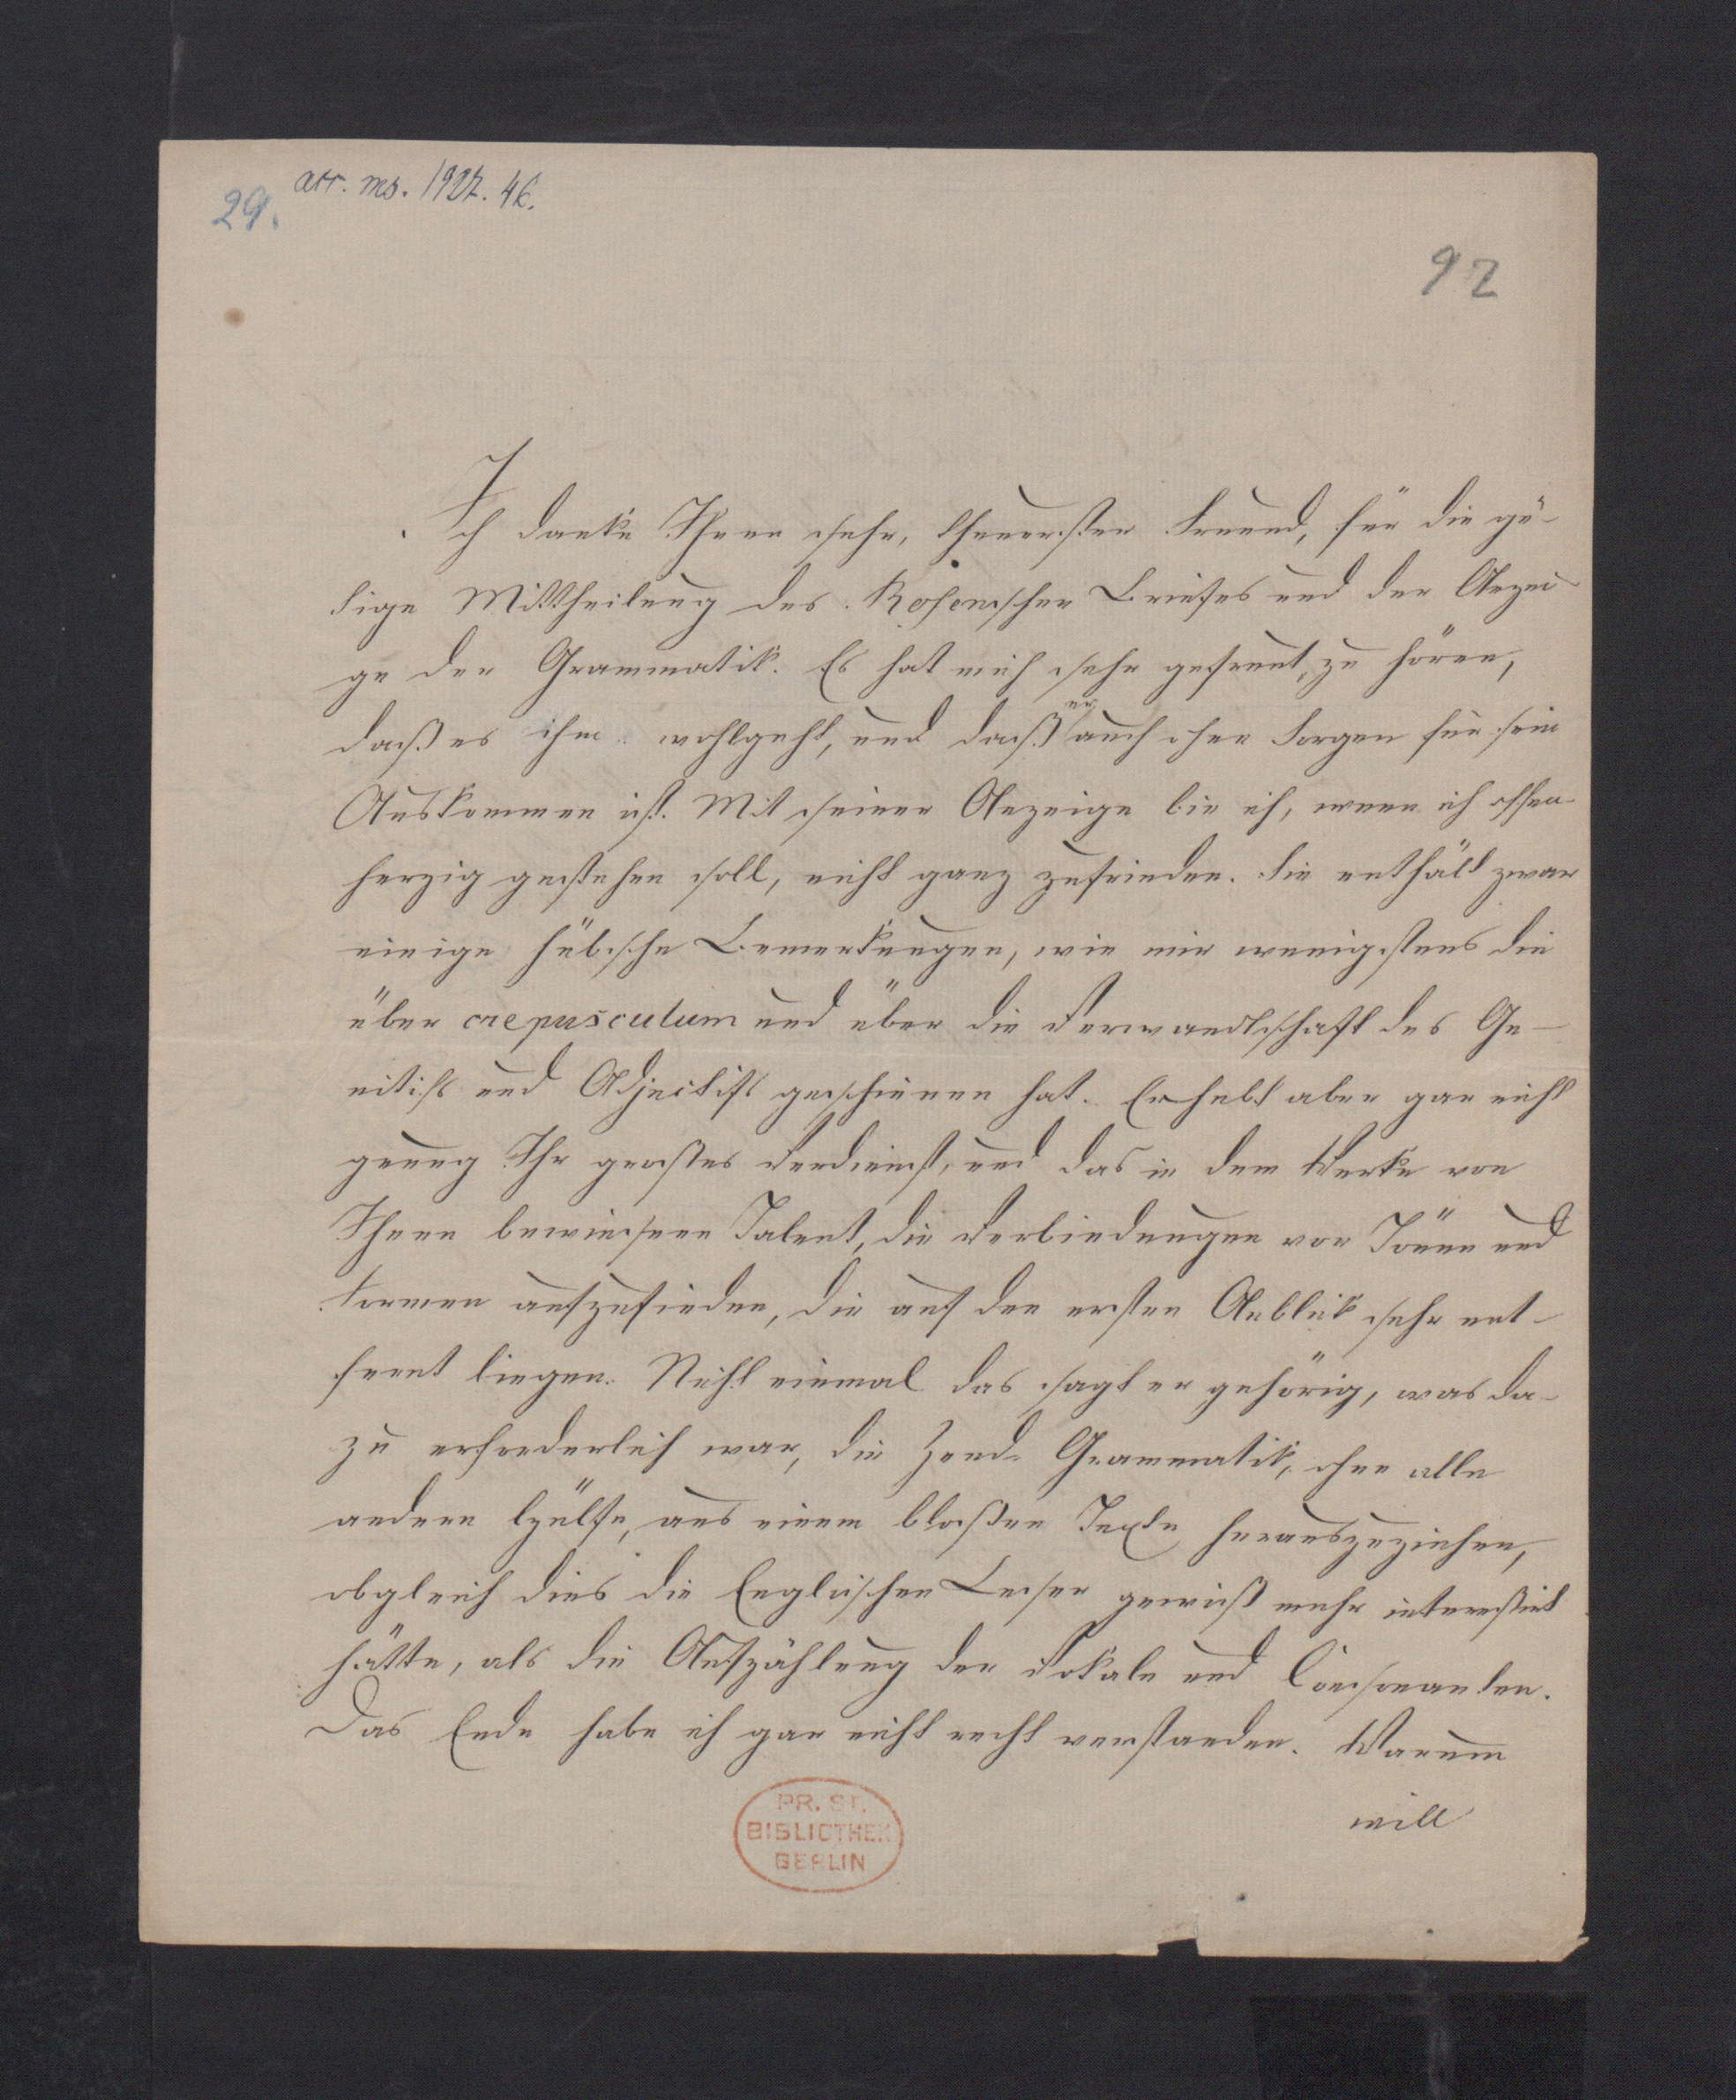 29.
acc. ms. 1927. 46.
92
Ich danke Ihnen sehr, theuerster Freund, für die gü-
tige Mittheilung des Rosenschen Briefes und der Anzei-
ge der Grammatik. Es hat mich sehr gefreut, zu hören,
daß es ihm wohlgeht, und daß er auch ohne Sorgen für sein
Auskommen ist. Mit seiner Anzeige bin ich, wenn ich offen-
herzig gestehen soll, nicht ganz zufrieden. Sie enthält zwar
einige hübsche Bemerkungen, wie mir wenigstens die
über crepusculum und über die Verwandtschaft des Ge-
nitifs und Adjectifs geschienen hat. Er hebt aber gar nicht
genug Ihr großes Verdienst, und das in dem Werke von
Ihnen bewiesene Talent, die Verbindungen von Tönen und
Formen aufzufinden, die auf den ersten Anblick sehr ent-
fernt liegen. Nicht einmal das sagt er gehörig, was da-
zu erforderlich war, die Zend-Grammatik, ohne alle
andere Hülfe, aus einem bloßen Texte herauszuziehen,
obgleich dies die Englischen Leser gewiß mehr interessirt
hätte, als die Aufzählung der Vokale und Consonanten.
Das Ende habe ich gar nicht recht verstanden. Warum
will
PR. ST.
BIBLIOTHEK
BERLIN